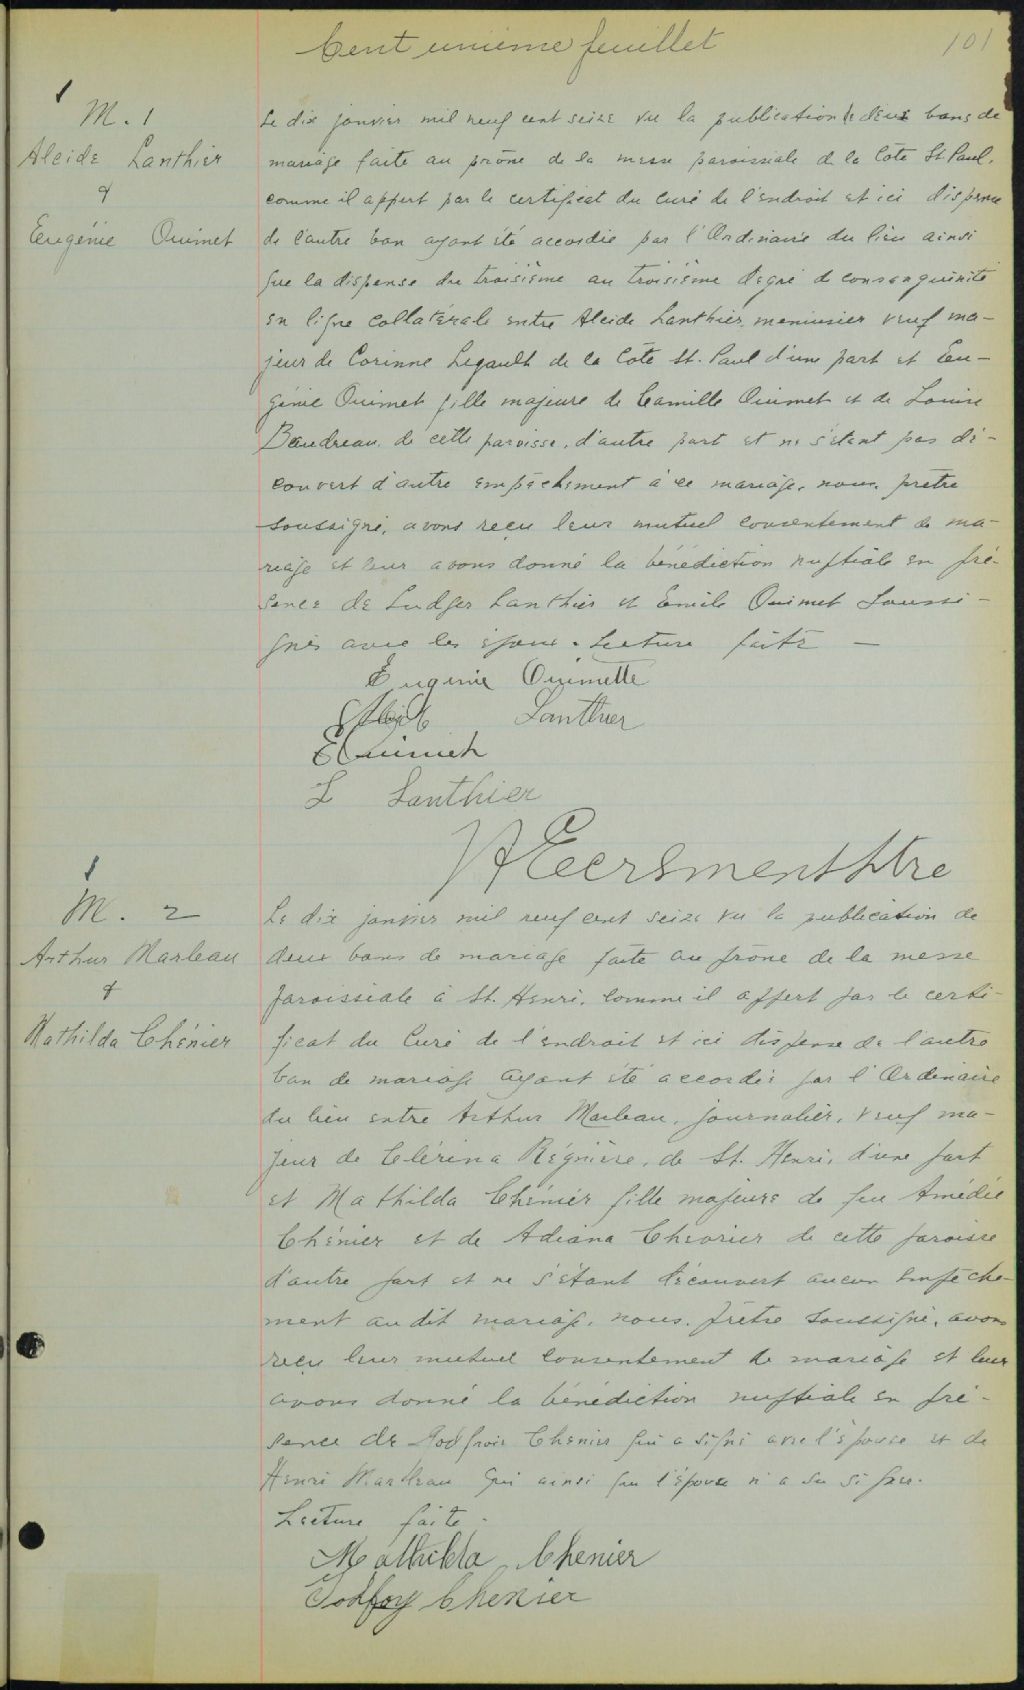 Cent unième feuillet
101
M. 1
Alcide Lanthier
&
Eugénie Ouimet
Le dix janvier mil neuf cent seize vu la publication de deux bans de
mariage faite au prône de la messe paroissiale de la Côte St. Paul,
comme il appert par le certificat du curé de l'endroit et ici dispense
de l'autre ban ayant été accordée par l'Ordinaire du lieu ainsi
que la dispense du troisième au troisième degré de consanguinité
en ligne collatérale entre Alcide Lanthier, menuisier veuf ma-
jeur de Corinne Legault de la Côte St. Paul d'une part et Eu-
génie Ouimet fille majeure de Camille Ouimet et de Louise
Beaudreau, de cette paroisse, d'autre part et ne s'étant pas dé-
couvert d'autre empêchement à ce mariage, nous, prêtre
soussigné, avons reçu leur mutuel consentement de ma-
riage et leur avons donné la bénédiction nuptiale en pré-
sence de Ludger Lanthier et Emile Ouimet soussi-
gnés avec les époux. Lecture faite —
Eugenie Ouimette
Lanthier
E Ouimet
L Lanthier
M. 2
Arthur Marleau
&
Mathilda Chénier
Le dix janvier mil neuf cent seize vu la publication de
deux bans de mariage faite au prône de la messe
paroissiale à St. Henri, comme il appert par le certi-
ficat du Curé de l'endroit et ici dispense de l'autre
ban de mariage ayant été accordée par l'Ordinaire
du lieu entre Arthur Marleau, journalier, veuf ma-
jeur de Clérina Régnière, de St. Henri, d'une part
et Mathilda Chénier fille majeure de feu Amédée
Chénier et de Adiana Chevrier de cette paroisse
d'autre part et ne s'étant découvert aucun empêche-
ment au dit mariage, nous, prêtre soussigné, avons
reçu leur mutuel consentement de mariage et leur
avons donné la bénédiction nuptiale en pré-
sence de Godfroie Chenier qui a signé avec l'épouse et de
Henri Marleau qui ainsi que l'époux n'a su signer.
Lecture faite.
Mathilda Chenier
Godfroy Chenier